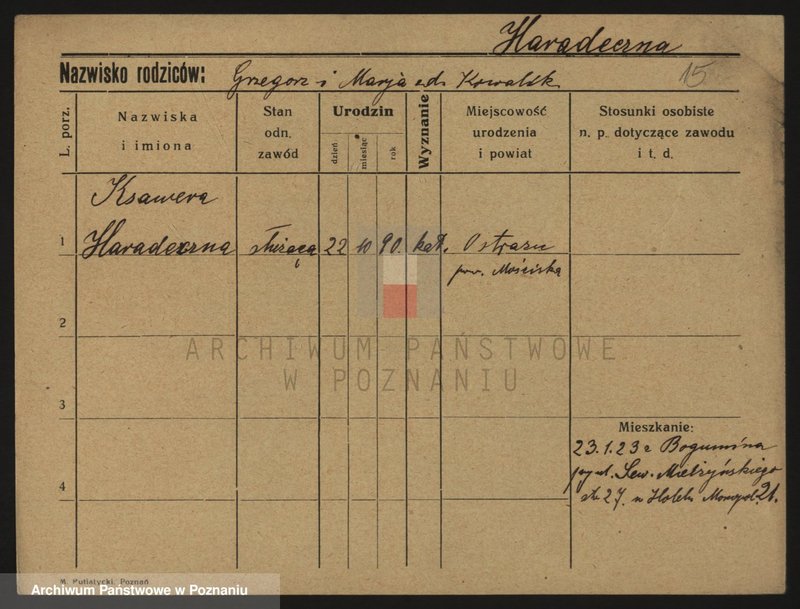 Haradeczna
Nazwisko rodziców: Grzegorz i Marja z d. Kowalsk
15
L. porz.
Nazwiska
i imiona
Stan
odn.
zawód
Urodzin
dzień
miesiąc
rok
Wyznanie
Miejscowość
urodzenia
i powiat
Stosunki osobiste
n. p. dotyczące zawodu
i t. d.
Ksawera
1 Haradeczna służąca 22 10 90. kat.
pow. Mościska
2
ARCHIWUM PAŃSTWOWE
W POZNANIU
3
Mieszkanie:
23.1.23 z Bogumina
Sew. Mielżyńskiego
27. w Hotelu Monopol. 21.
4
M. Putiatycki, Poznań
Archiwum Państwowe w Poznaniu